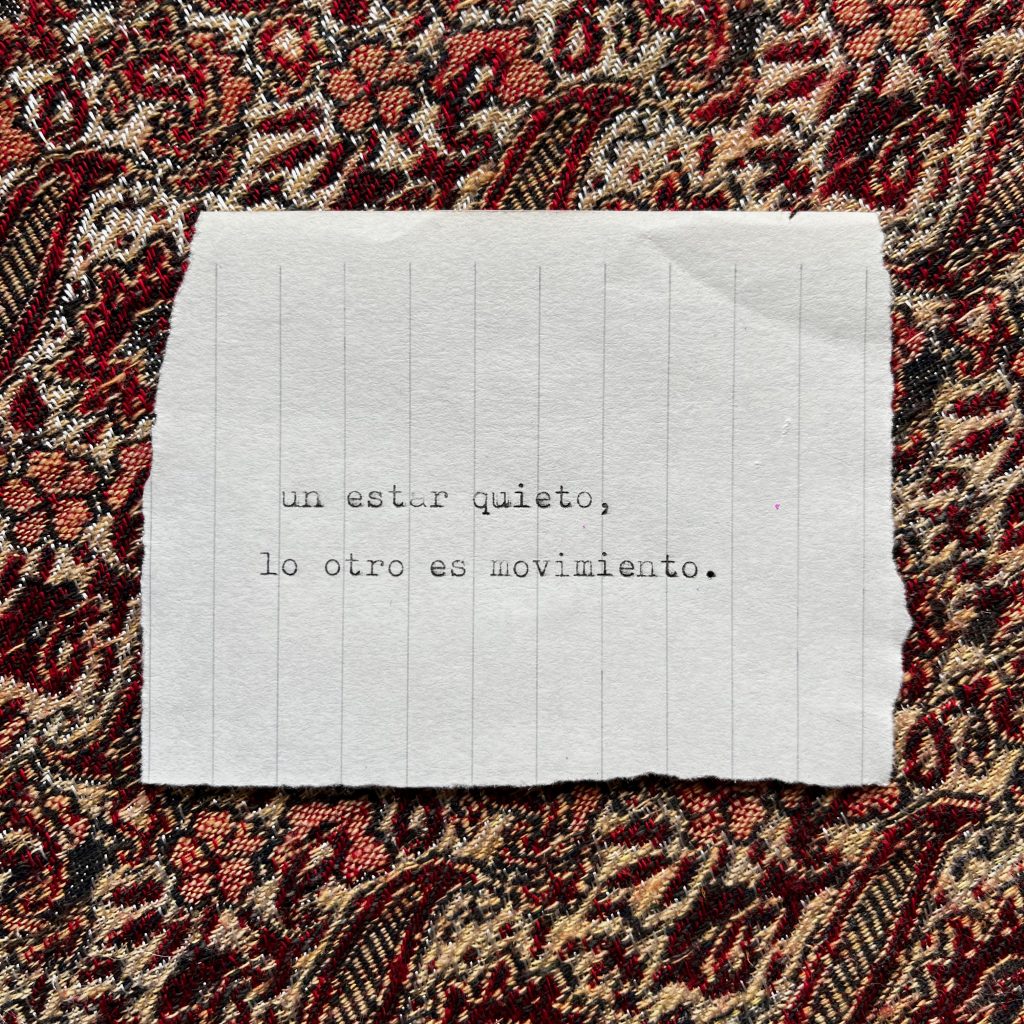 un estar quieto,
lo otro es movimiento.